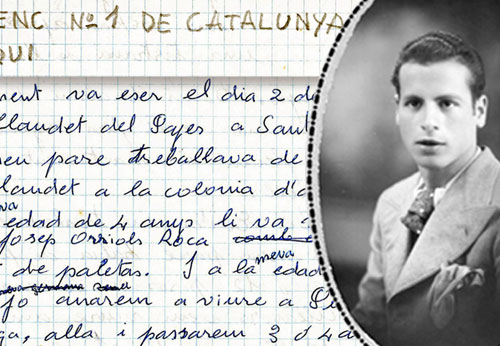 ENC Nº1 DE CATALUNYA
QUI
ment va eser el dia 2 de
Llaudet del Pages a Sant
seu pare treballava de
laudet a la colonia d'a
va
edad de 4 anys li va
Josep Orriols Roca
de paletas. I a la meva edad
jo anarem a viure a
ga, alla i passarem 3 o 4 a